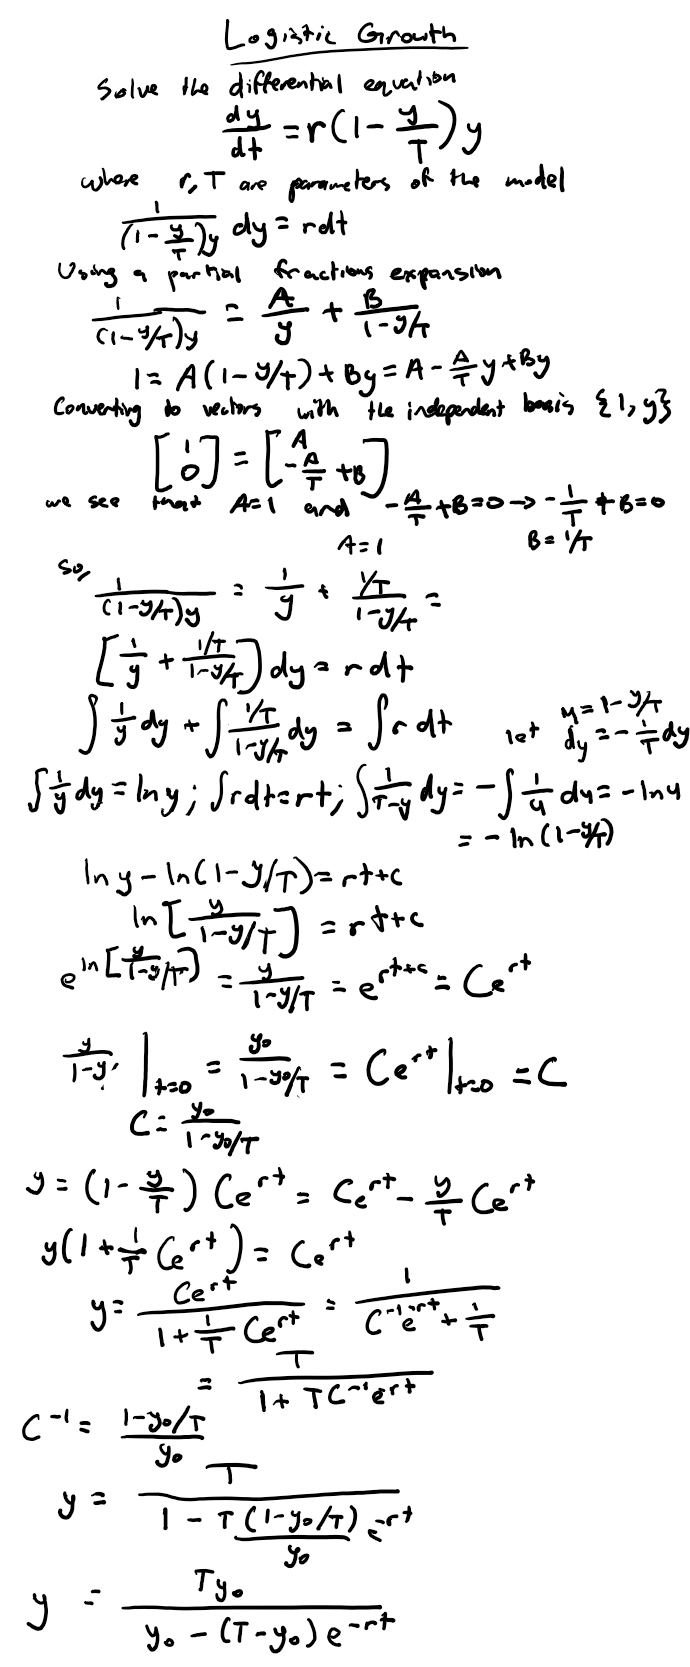 Logistic Growth
Solve the differential equation
dy/dt = r(1 - y/T)y
where r, T are parameters of the model
1/((1 - y/T)y) dy = rdt
Using a partial fractions expansion
1/((1-y/T)y) = A/y + B/(1-y/T)
1 = A(1-y/T) + By = A - A/T y + By
Converting to vectors with the independent basis {1, y}
[1 0] = [A -A/T + B]
we see that A=1 and -A/T + B = 0 → -1/T + B = 0
A=1 B = 1/T
So, 1/((1-y/T)y) = 1/y + (1/T)/(1-y/T) =
[1/y + (1/T)/(1-y/T)] dy = r dt
∫ 1/y dy + ∫ (1/T)/(1-y/T) dy = ∫ r dt let u = 1-y/T
dy = -1/T dy
∫ 1/y dy = ln y ; ∫ rdt = rt ; ∫ 1/(T-y) dy = -∫ 1/u du = -ln u
= -ln(1-y/T)
ln y - ln(1-y/T) = rt+c
ln[y/(1-y/T)] = rt+c
e^(ln[y/(1-y/T)]) = y/(1-y/T) = e^(rt+c) = Ce^(rt)
y/(1-y/ |t=0 = y₀/(1-y₀/T) = Ce^(rt)|t=0 = C
C = y₀/(1-y₀/T)
y = (1 - y/T) Ce^(rt) = Ce^(rt) - y/T Ce^(rt)
y(1 + 1/T Ce^(rt)) = Ce^(rt)
y = Ce^(rt)/(1 + 1/T Ce^(rt)) = 1/(C^(-1)e^(-rt) + 1/T)
= T/(1 + TC^(-1)e^(-rt))
C^(-1) = (1-y₀/T)/y₀
y = T/(1 - T(1-y₀/T)/y₀ e^(-rt))
y = Ty₀/(y₀ - (T-y₀)e^(-rt))